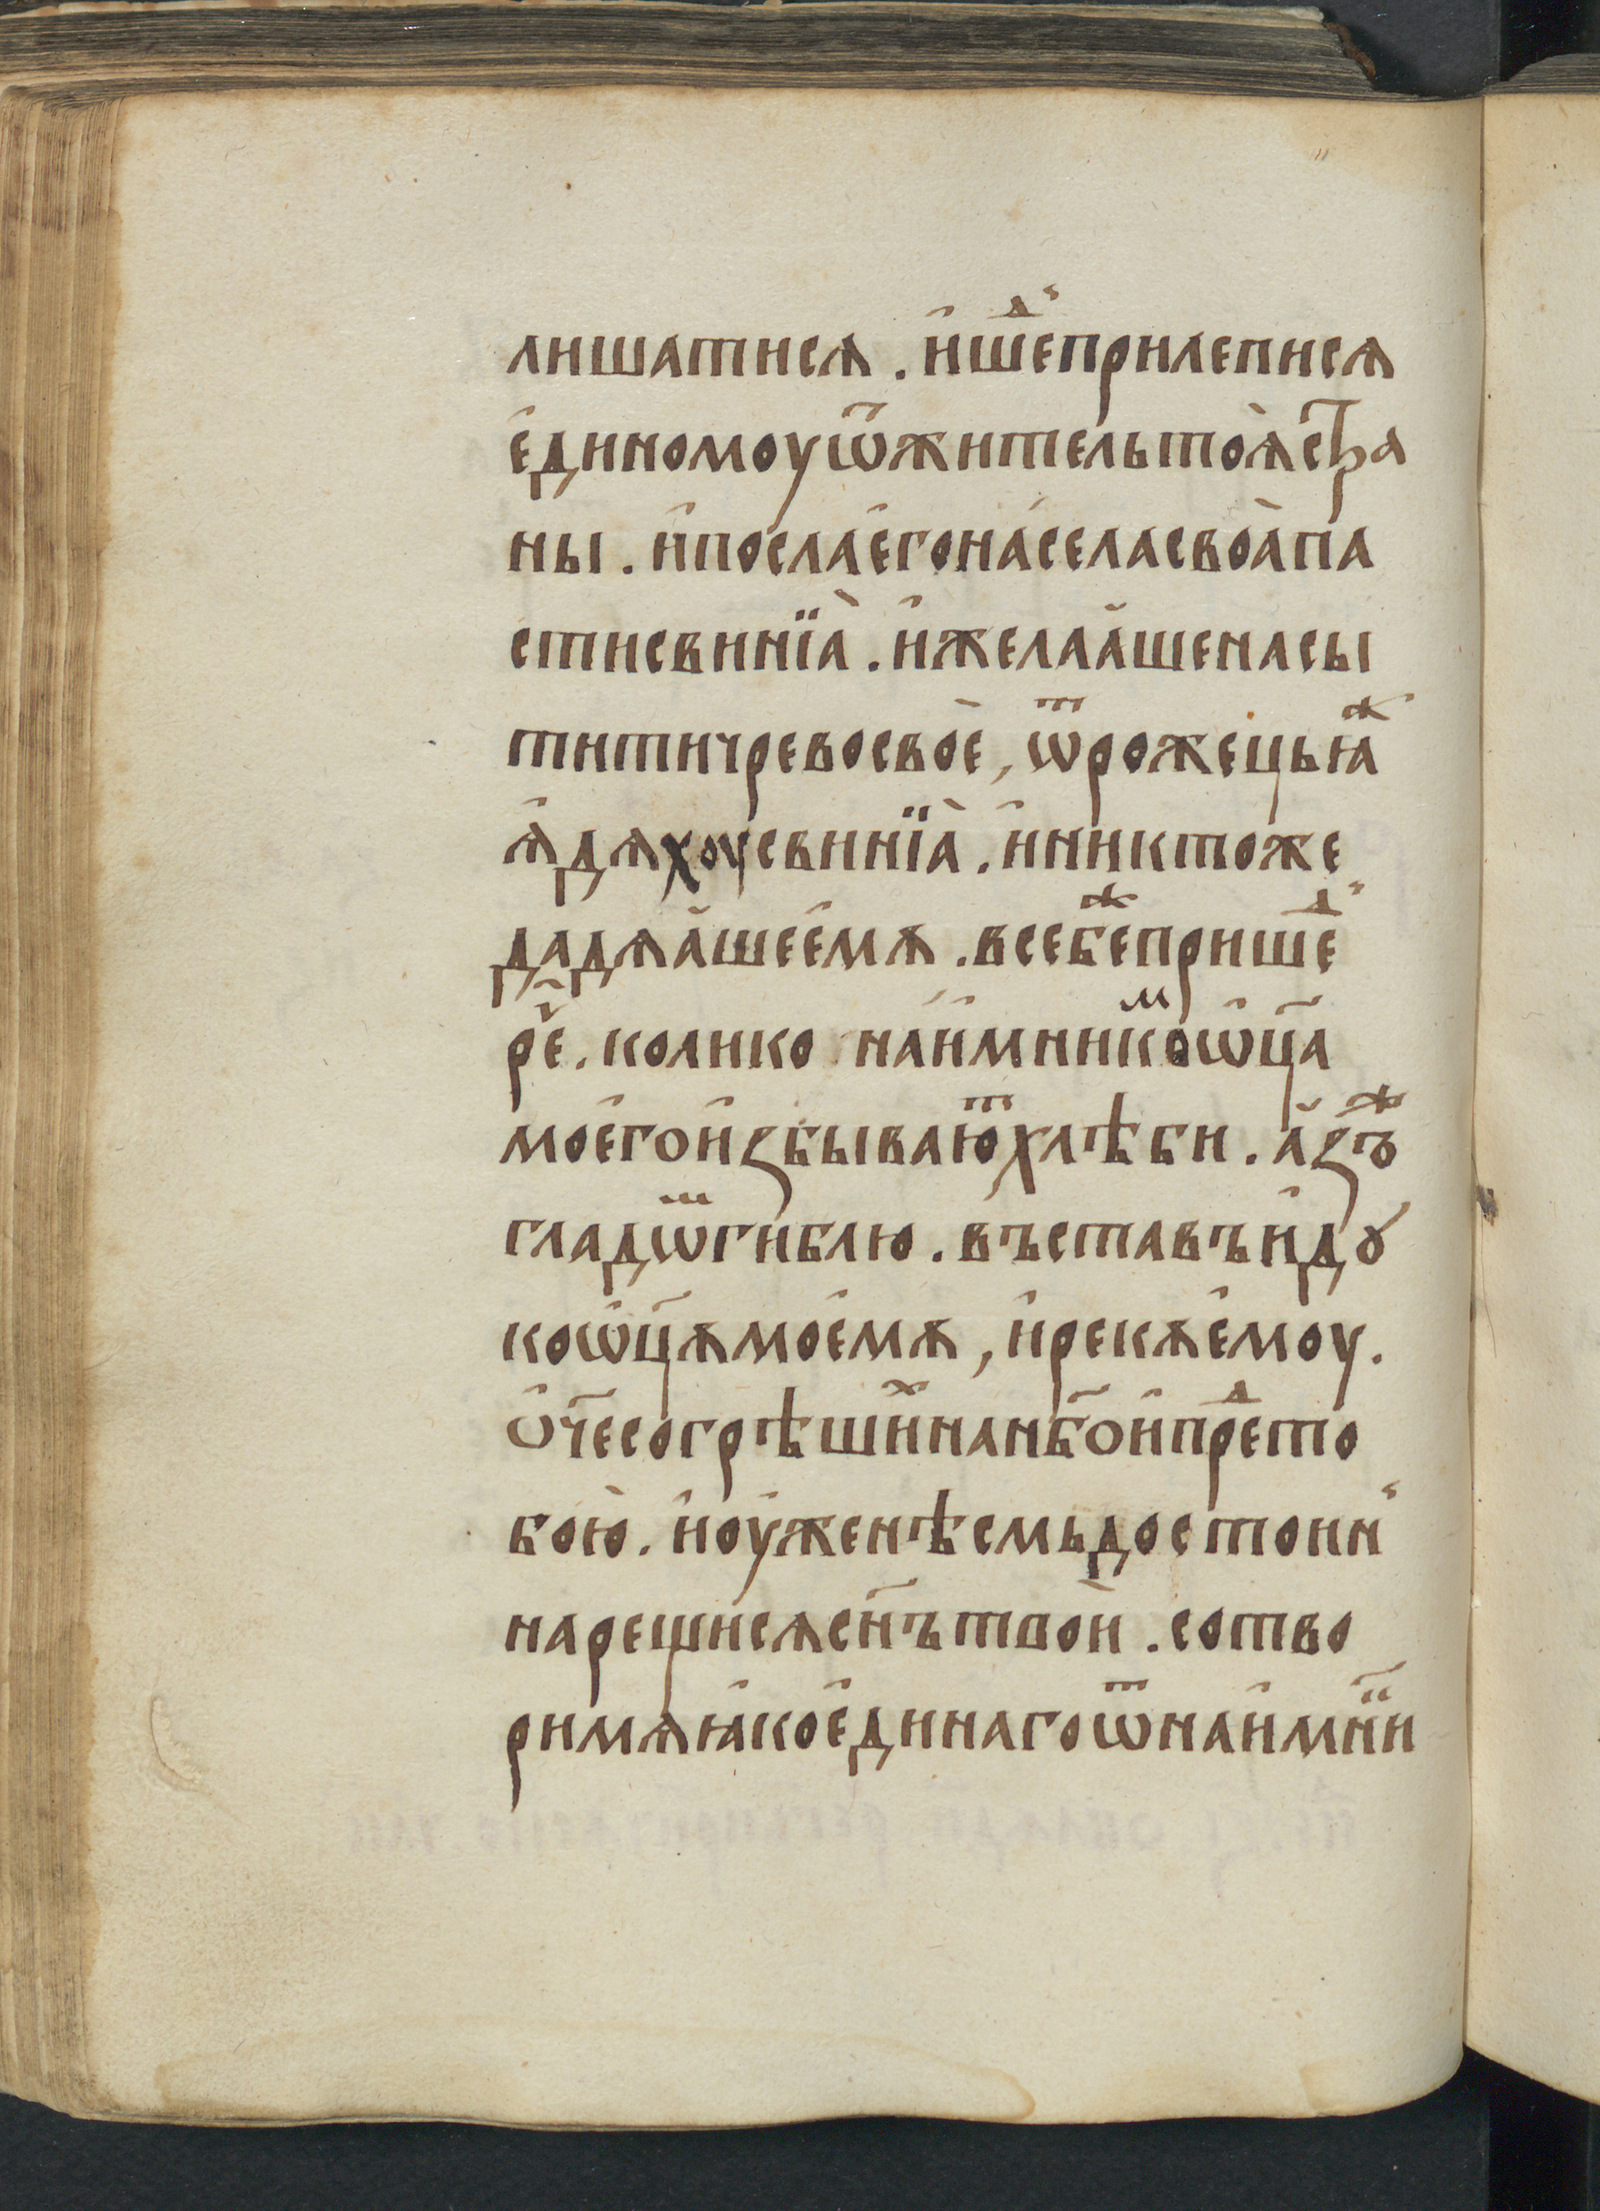 лишатисѧ . и҆шеⷣ прилеписѧ
е҆диномоу ѿ житель тоѧ҆ стра
ны . и҆посла е҆го на села своа҆ па
сти свинїа҆ . и҆ желаа҆ше насы
тити чрево свое҆ , ѿ рожець ꙗ҆ж
ѧ҆дѧхоу свинїа҆ . и҆ никтоже
дадѧа҆ше е҆мѫ . в себеⷤ прише
рⷣе҇ . колико наи҆мникоⷨ ѡ҆ц҃а
моего и҆збываюⷮ хлѣби . а҆зъⷤ
гладѡⷨ гиблю . въставъ и҆дꙋ
ко ѡ҆ц҃ѫ моемѫ , и҆ рекѫ е҆моу .
ѡ҆ч҃е согрѣшиⷯ на нб҃о и҆ преⷣ то
бою . и҆ оуже нѣсмь достоин
нарещисѧ сн҃ъ твои҆ . сотво
ри мѧ ꙗ҆ко е҆динаго ѿ наи҆мн҃и